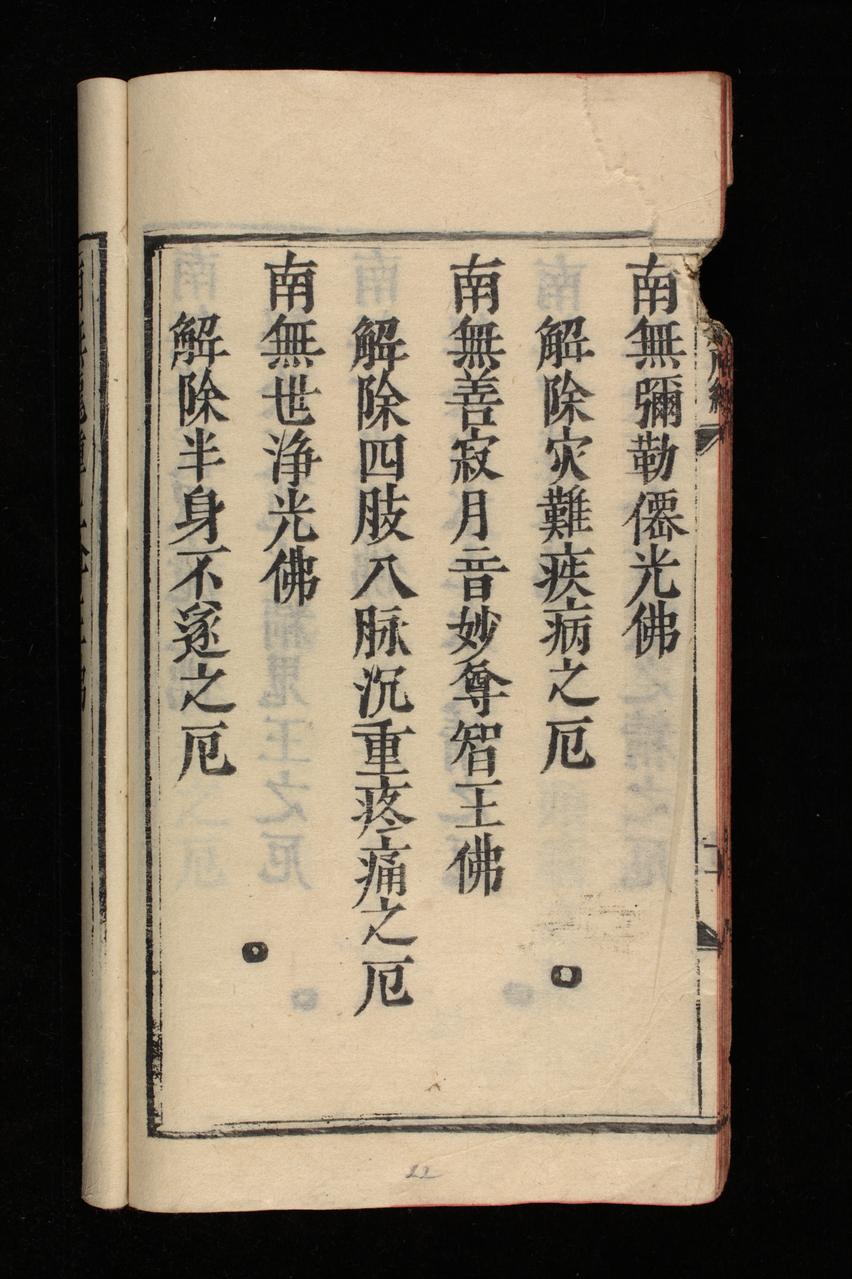 南無彌勒僊光佛
解除灾難疾病之厄
南無善寂月音妙尊智王佛
解除四肢八脉沉重疼痛之厄
南無世浄光佛
解除半身不遂之厄
22